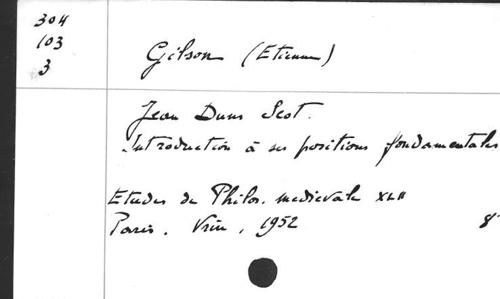 304
103
3
Gilson (Etienne)
Jean Duns Scot.
Introduction à ses positions fondamentales
Etudes de Philos. médiévale XLII
Paris. Vrin, 1952 8°